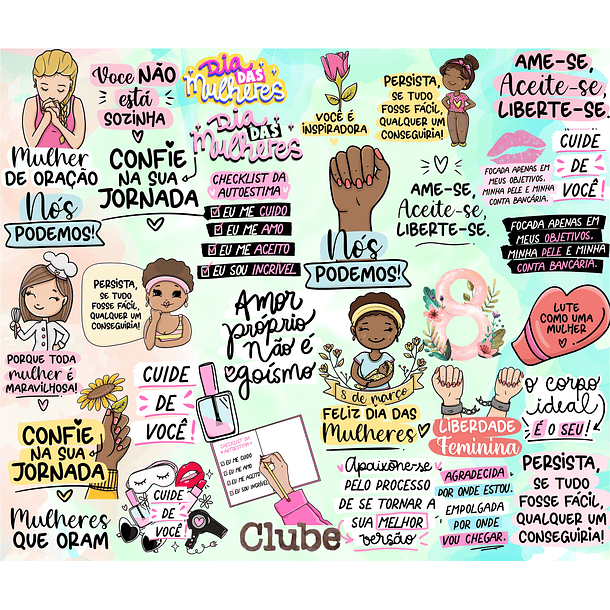 Voce NÃO
está
SOZINHA
Mulher
DE ORAÇÃO
CONFIE
NA SUA
JORNADA
Nós
PODEMOS!
DIA
DAS
Mulheres
DIA
DAS
Mulheres
CHECKLIST DA
AUTOESTIMA
EU ME CUIDO
EU ME AMO
EU ME ACEITO
EU SOU INCRÍVEL
VOCÊ É
INSPIRADORA
PERSISTA,
SE TUDO
FOSSE FÁCIL,
QUALQUER UM
CONSEGUIRIA!
AME-SE,
Aceite-se,
LIBERTE-SE.
Nós
PODEMOS!
AME-SE,
Aceite-se,
LIBERTE-SE.
FOCADA APENAS EM
MEUS OBJETIVOS.
MINHA PELE E MINHA
CONTA BANCÁRIA.
CUIDE
DE
VOCÊ!
FOCADA APENAS EM
MEUS OBJETIVOS.
MINHA PELE E MINHA
CONTA BANCÁRIA.
PORQUE TODA
mulher É
MARAVILHOSA!
PERSISTA,
SE TUDO
FOSSE FÁCIL,
QUALQUER UM
CONSEGUIRIA!
Amor
próprio
Não é
egoísmo
8 de março
FELIZ DIA DAS
Mulheres
8
LUTE
COMO UMA
MULHER
LIBERDADE
Feminina
O corpo
ideal
É O SEU!
CONFIE
NA SUA
JORNADA
Mulheres
QUE ORAM
CUIDE
DE
VOCÊ!
CUIDE
DE
VOCÊ!
CHECKLIST DA
AUTOESTIMA
EU ME CUIDO
EU ME AMO
EU ME ACEITO
EU SOU INCRÍVEL
Clube
Apaixone-se
PELO PROCESSO
DE SE TORNAR A
SUA MELHOR
versão
AGRADECIDA
POR ONDE ESTOU.
EMPOLGADA
POR ONDE
VOU CHEGAR.
PERSISTA,
SE TUDO
FOSSE FÁCIL,
QUALQUER UM
CONSEGUIRIA!